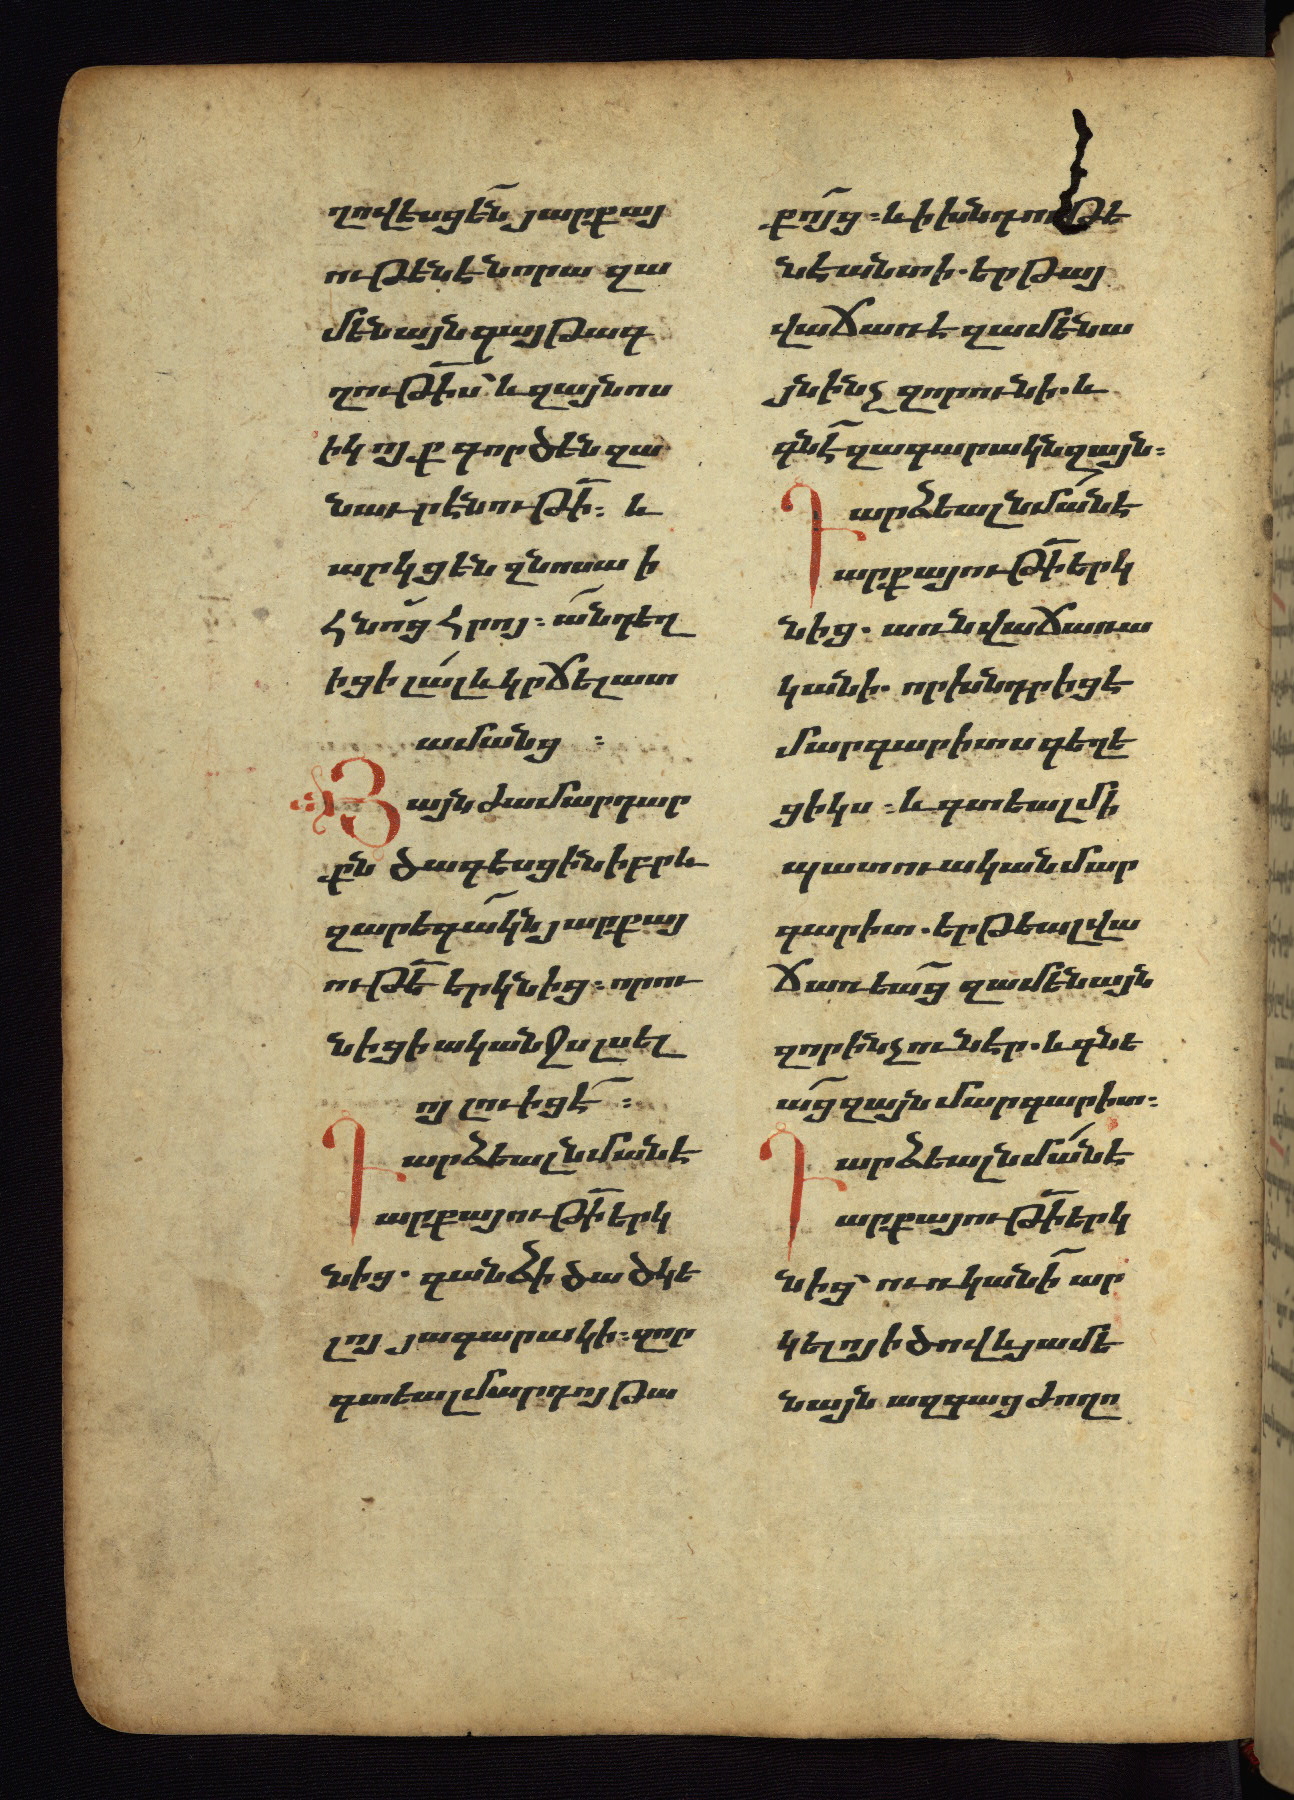 ղովեսցեն յարքայ
ութենէ նորա զա
մենայն գայթագ
ղութիս՝ և զայնոս
իկ ոյք գործեն զա
նաւրէնութի։ և
արկցեն զնոսա ի
հնոց հրոյ։ անդ եղ
իցի լալ և կրճել ատ
ամանց ։
Յայնժամ արդար
քն ծագեսցին իբրև
զարեգակն յարքայ
ութե երկնից։ որ ու
նիցի ականջս լսել
ոյ լուիցէ ։
Դարձեալ նման է
արքայութի երկ
նից. գանձի ծածկե
լոյ յագարակի։ զոր
գտեալ մարդոյ թա
քոյց։ և ի խնդութե
նէ անտի. երթայ
վաճառէ զամենա
յն ինչ զոր ունի. և
գնէ զագարակն զայն։
Դարձեալ նման է
արքայութի երկ
նից. առն վաճառա
կանի. որ խնդրիցէ
մարգարիտս գեղե
ցիկս ։ և գտեալ մի
պատուական մար
գարիտ. երթեալ վա
ճառեաց զամենայն
զոր ինչ ունէր. և գնե
աց զայն մարգարիտ։
Դարձեալ նման է
արքայութի երկ
նից՝ ուռկանի ար
կելոյ ի ծով և յամե
նայն ազգաց ժողո